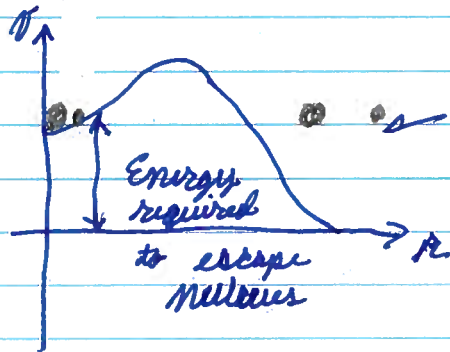 V
Energy
required
to escape
nucleus
r